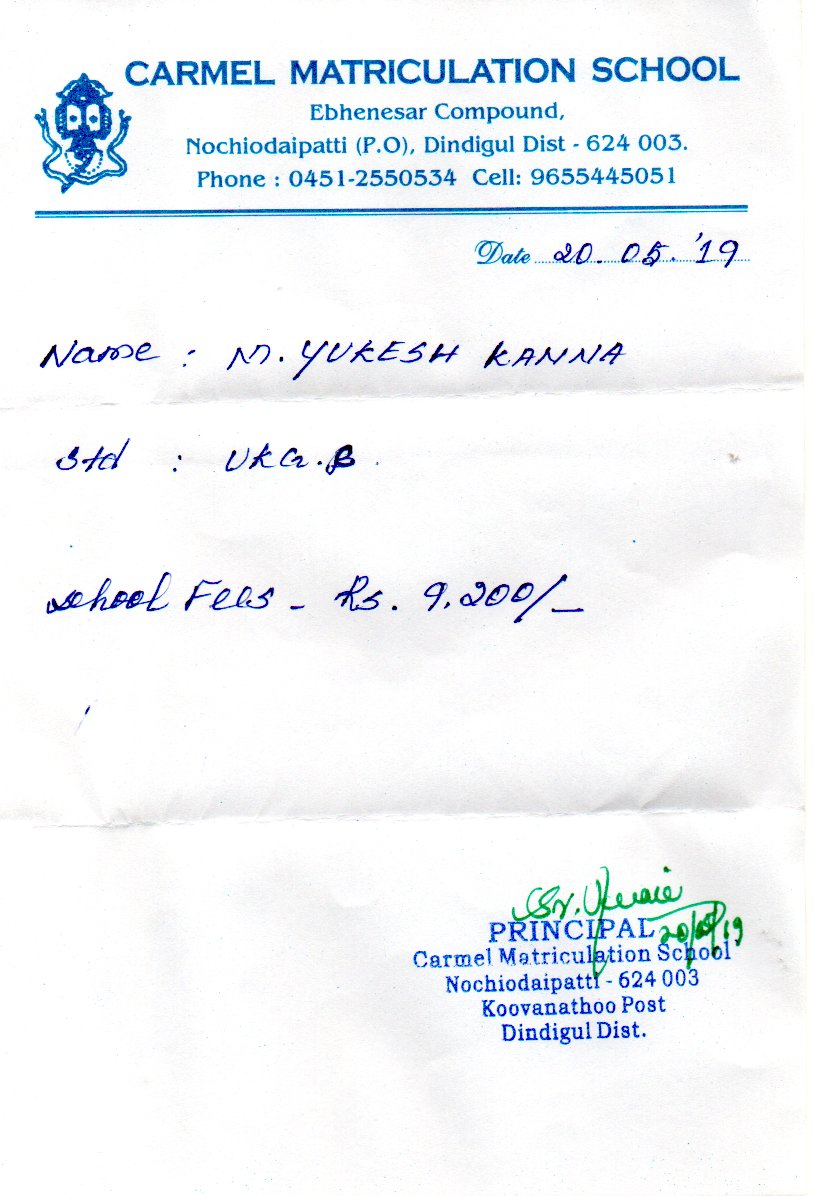 CARMEL MATRICULATION SCHOOL
Ebhenesar Compound,
Nochiodaipatti (P.O), Dindigul Dist - 624 003.
Phone : 0451-2550534 Cell: 9655445051
Date 20. 05. '19
Name : M. YUKESH KANNA
Std : UKG.B
School Fees - Rs. 9,200/-
PRINCIPAL
Carmel Matriculation School
Nochiodaipatti - 624 003
Koovanathoo Post
Dindigul Dist.